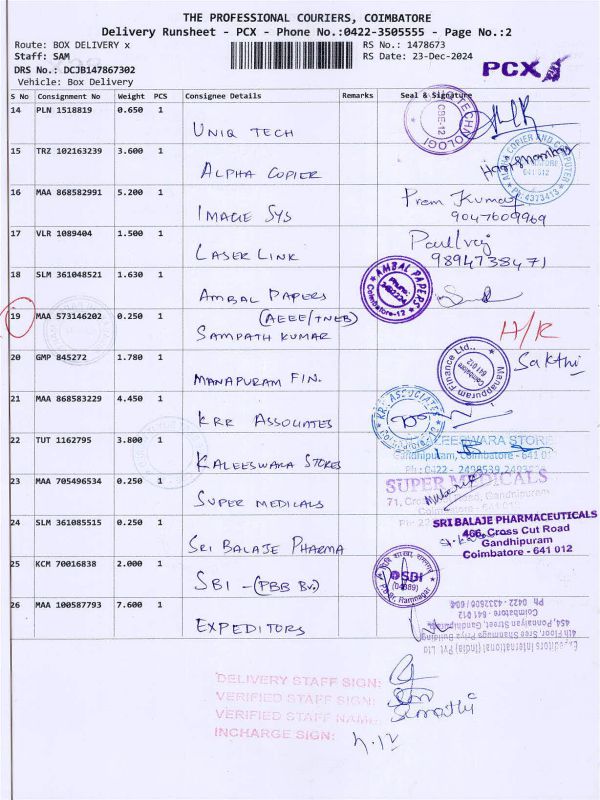 THE PROFESSIONAL COURIERS, COIMBATORE
Delivery Runsheet - PCX - Phone No.:0422-3505555 - Page No.:2
Route: BOX DELIVERY x RS No.: 1478673
Staff: SAM RS Date: 23-Dec-2024
DRS No.: DCJB147867302 PCX
Vehicle: Box Delivery
S No Consignment No Weight PCS Consignee Details Remarks Seal & Signature
14 PLN 1518819 0.650 1
UNIQ TECH
15 TRZ 102163239 3.600 1
ALPHA COPIER
16 MAA 868582991 5.200 1
IMAGE SYS Prem Kumar
9047609969
17 VLR 1089404 1.500 1
LASER LINK Paulraj
9894738471
18 SLM 361048521 1.630 1
AMBAL PAPERS AMBAL PAPERS
Coimbatore-12
19 MAA 573146202 0.250 1 (AEEE/TNEB)
SAMPATH KUMAR H/R
20 GMP 845272 1.780 1
MANAPURAM FIN. Manappuram Finance Ltd., Sakthi
21 MAA 868583229 4.450 1
KRR ASSOCIATES KRR ASSOCIATES
22 TUT 1162795 3.800 1
KALEESWARA STORES KALEESWARA STORE
Gandhipuram, Coimbatore - 641 0
23 MAA 705496534 0.250 1
SUPER MEDICALS SUPER MEDICALS
24 SLM 361085515 0.250 1
SRI BALAJE PHARMA SRI BALAJE PHARMACEUTICALS
466, Cross Cut Road
Gandhipuram
Coimbatore - 641 012
25 KCM 70016838 2.000 1
SBI - (PBB Br.) SBI
26 MAA 100587793 7.600 1
EXPEDITORS
Expeditors International (India) Pvt Ltd
4th Floor, Sree Shanmuga Priya Building
454, Ponnaiyan Street, Gandhipuram
Coimbatore - 641 012
DELIVERY STAFF SIGN:
VERIFIED STAFF SIGN:
VERIFIED STAFF NAME:
INCHARGE SIGN: